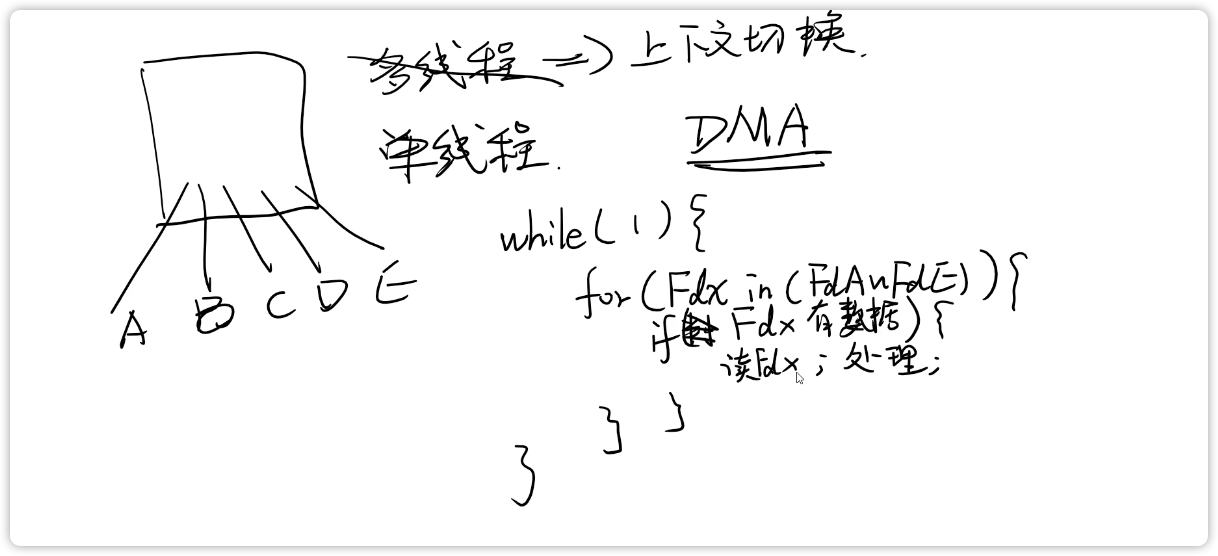 多线程 => 上下文切换.
单线程. DMA
while(1){
for(Fdx in (FdA~FdE)){
if( Fdx 有数据){
读Fdx; 处理;
}
}
}
A B C D E